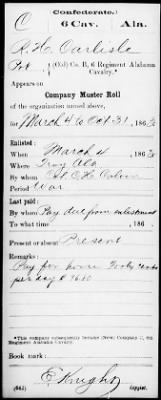 Confederate.
C 6 Cav. Ala.
R. H. Carlisle
Pvt, (Old) Co. B, 6 Regiment Alabama
Cavalry.*
Appears on
Company Muster Roll
of the organization named above,
for March 4 to Oct 31, 186
Enlisted:
When March 4, 186
Where Troy Ala
By whom
Period War
Last paid:
By whom Pay due from enlistment
To what time , 186 .
Present or absent Present
Remarks:
Pay for horse
per day $
*This company subsequently became (New) Company C, 6th
Regiment Alabama Cavalry.
Book mark:
E Knight
(642) Copyist.